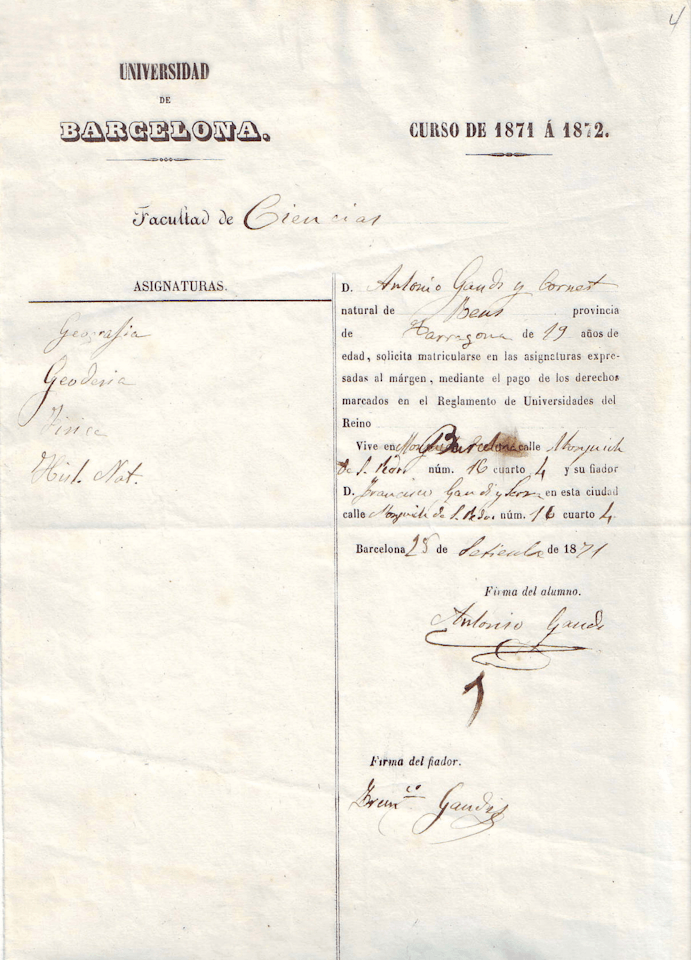 4
UNIVERSIDAD
DE
BARCELONA.
CURSO DE 1871 Á 1872.
Facultad de Ciencias
ASIGNATURAS.
Geografia
Geodesia
Fisica
Hist. Nat.
D. Antonio Gaudi y Cornet
natural de Reus provincia
de Tarragona de 19 años de
edad, solicita matricularse en las asignaturas expre-
sadas al márgen, mediante el pago de los derechos
marcados en el Reglamento de Universidades del
Reino
Vive en Barcelona calle
de S. núm. 16 cuarto 4 y su fiador
D. Francisco Gaudi y Serra en esta ciudad
calle de S. núm. 16 cuarto 4
Barcelona 28 de Setiembre de 1871
Firma del alumno.
Antonio Gaudi
Firma del fiador.
Franco Gaudi